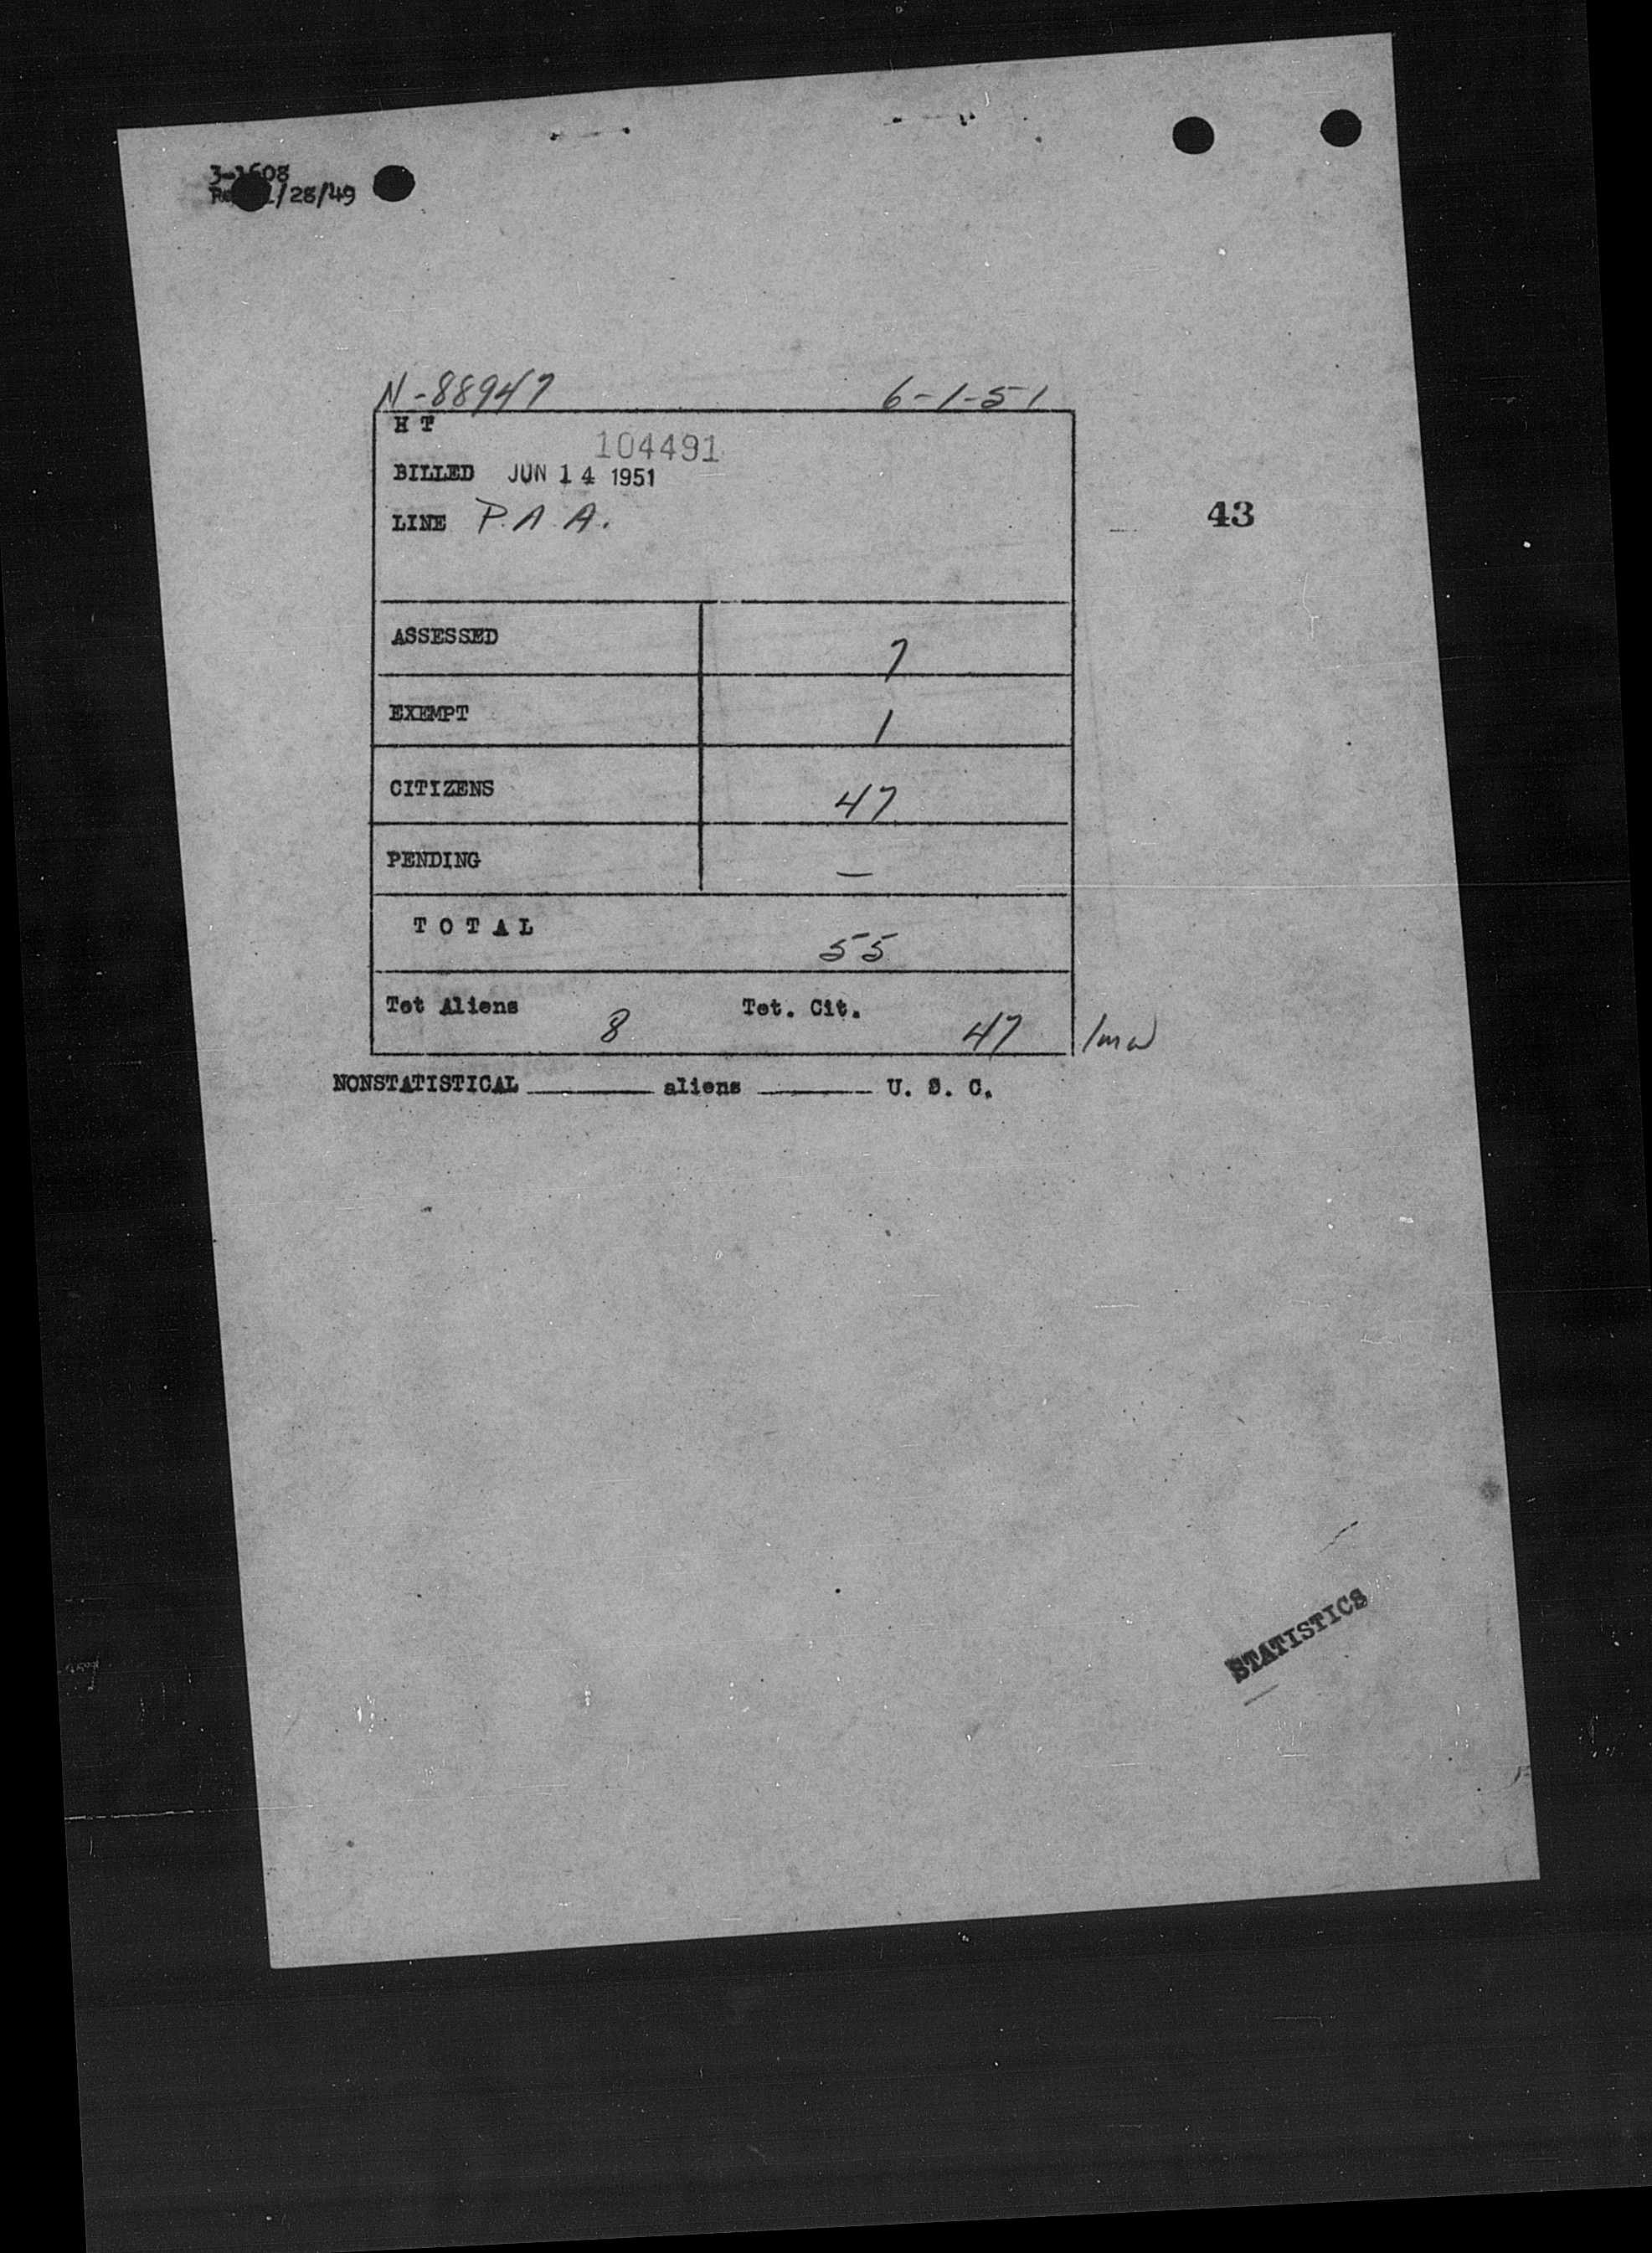 3-1608
1/28/49
N-88947 6-1-51
H T
104491
BILLED JUN 14 1951
LINE P.A.A.
43
ASSESSED 7
EXEMPT 1
CITIZENS 47
PENDING —
T O T A L 55
Tot Aliens 8 Tot. Cit. 47
NONSTATISTICAL ________ aliens ________ U. S. C.
STATISTICS